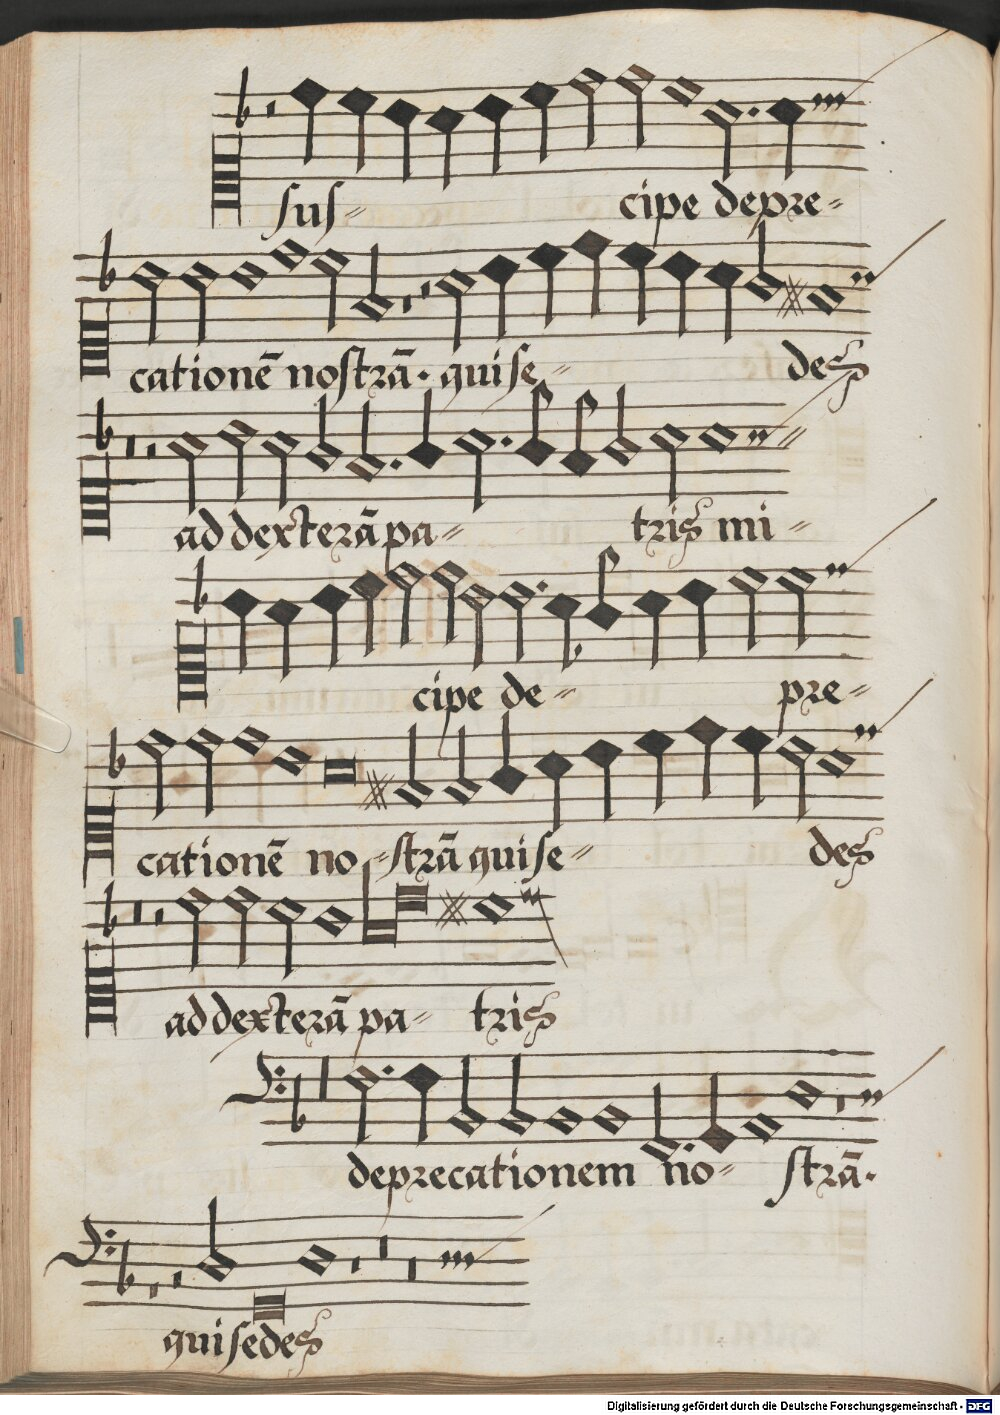 sus- cipe depre-
cationē nostrā. qui se- des
ad dexterā pa- tris mi-
cipe de- pre-
cationē no-strā qui se- des
ad dexterā pa- tris
deprecationem no- strā.
qui sedes
Digitalisierung gefördert durch die Deutsche Forschungsgemeinschaft - DFG